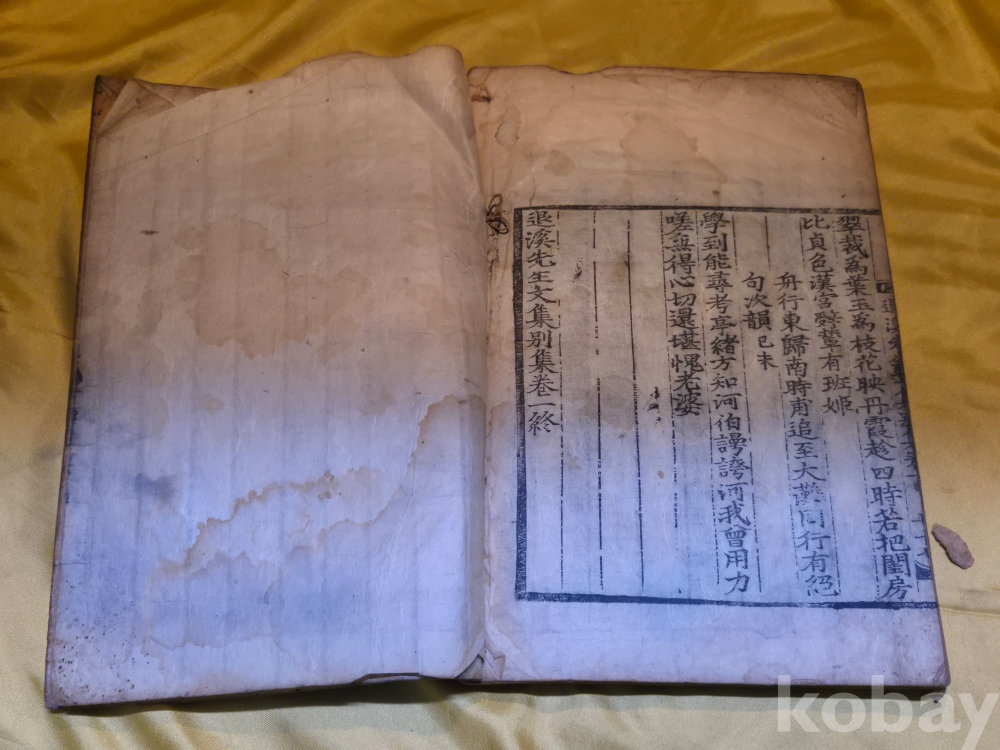 翠裁爲葉玉爲枝花映丹霞趁四時若把閨房
比貞色漢宮辭輦有班姬
舟行東歸南時甫追至大灘同行有絕
句次韻 己未
學到能尋考亭緖方知河伯謾誇河我曾用力
嗟無得心切還堪愧老婆
退溪先生文集別集卷一終
kobay